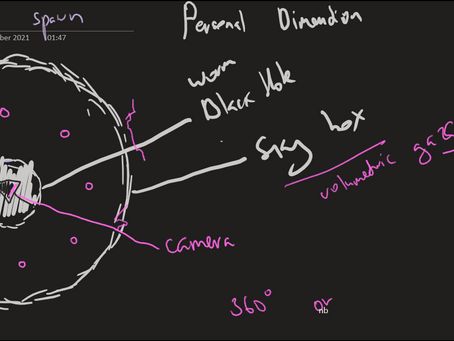 spawn
ber 2021 01:47
Personal Dimension
worm
Black Hole
Sky box
volumetric
camera
360° or